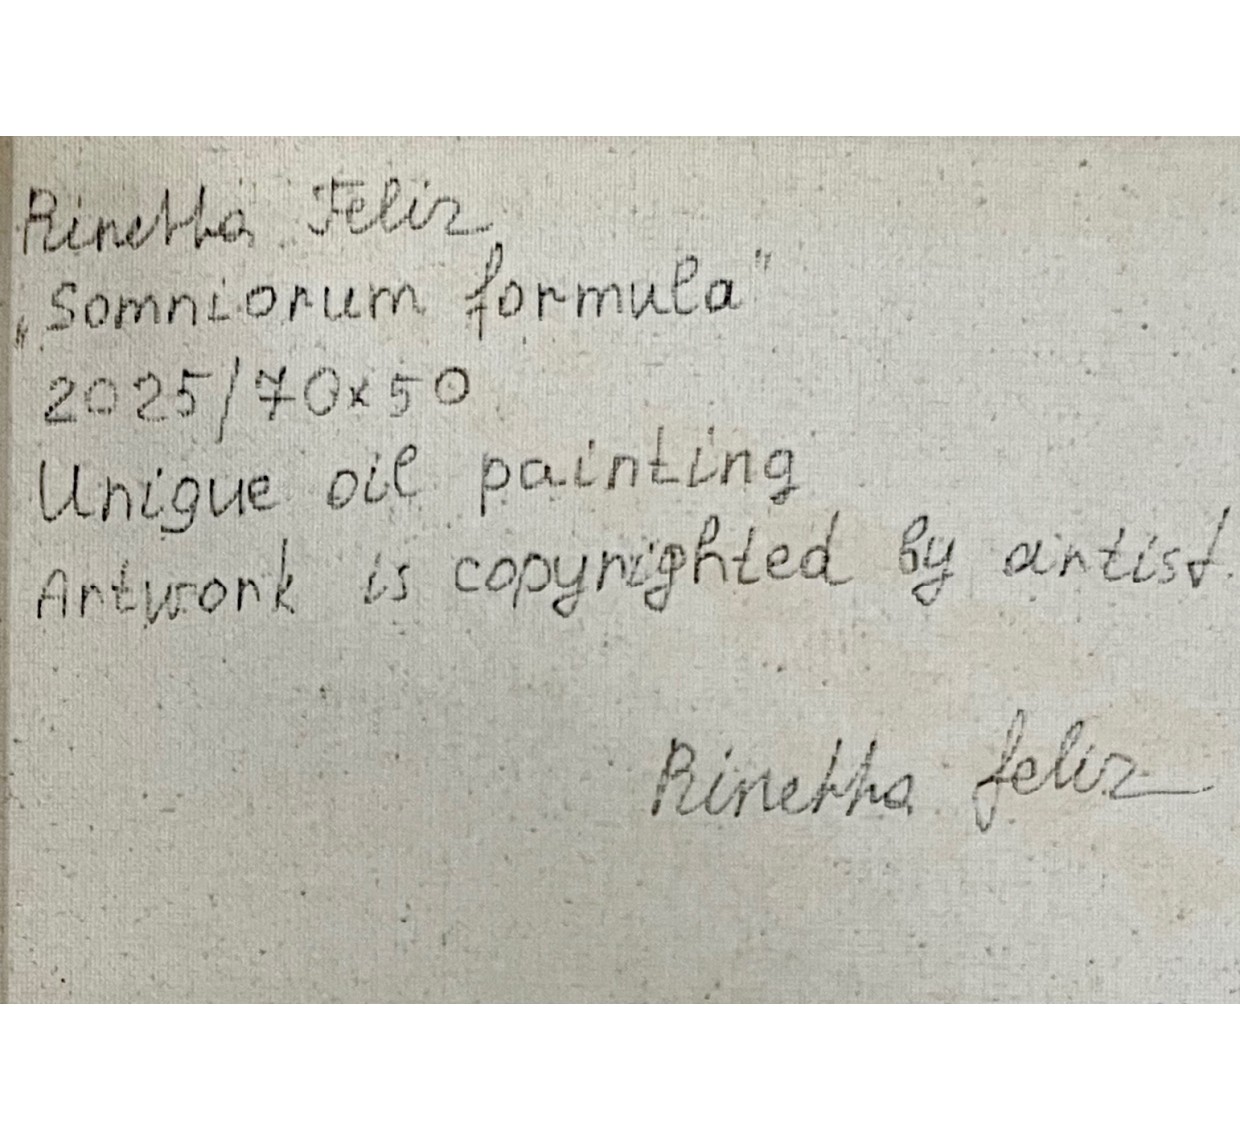 Rinettha Feliz
„Somniorum formula"
2025/70x50
Unique oil painting
Artwork is copyrighted by artist.
Rinettha feliz